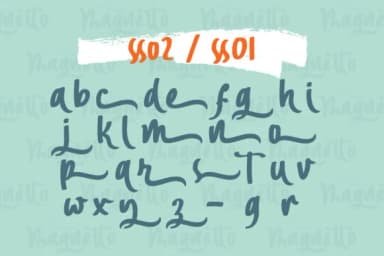 ss02 / ss01
a b c d e f g h i
j k l m n o
p q r s T u v
w x y z - g r